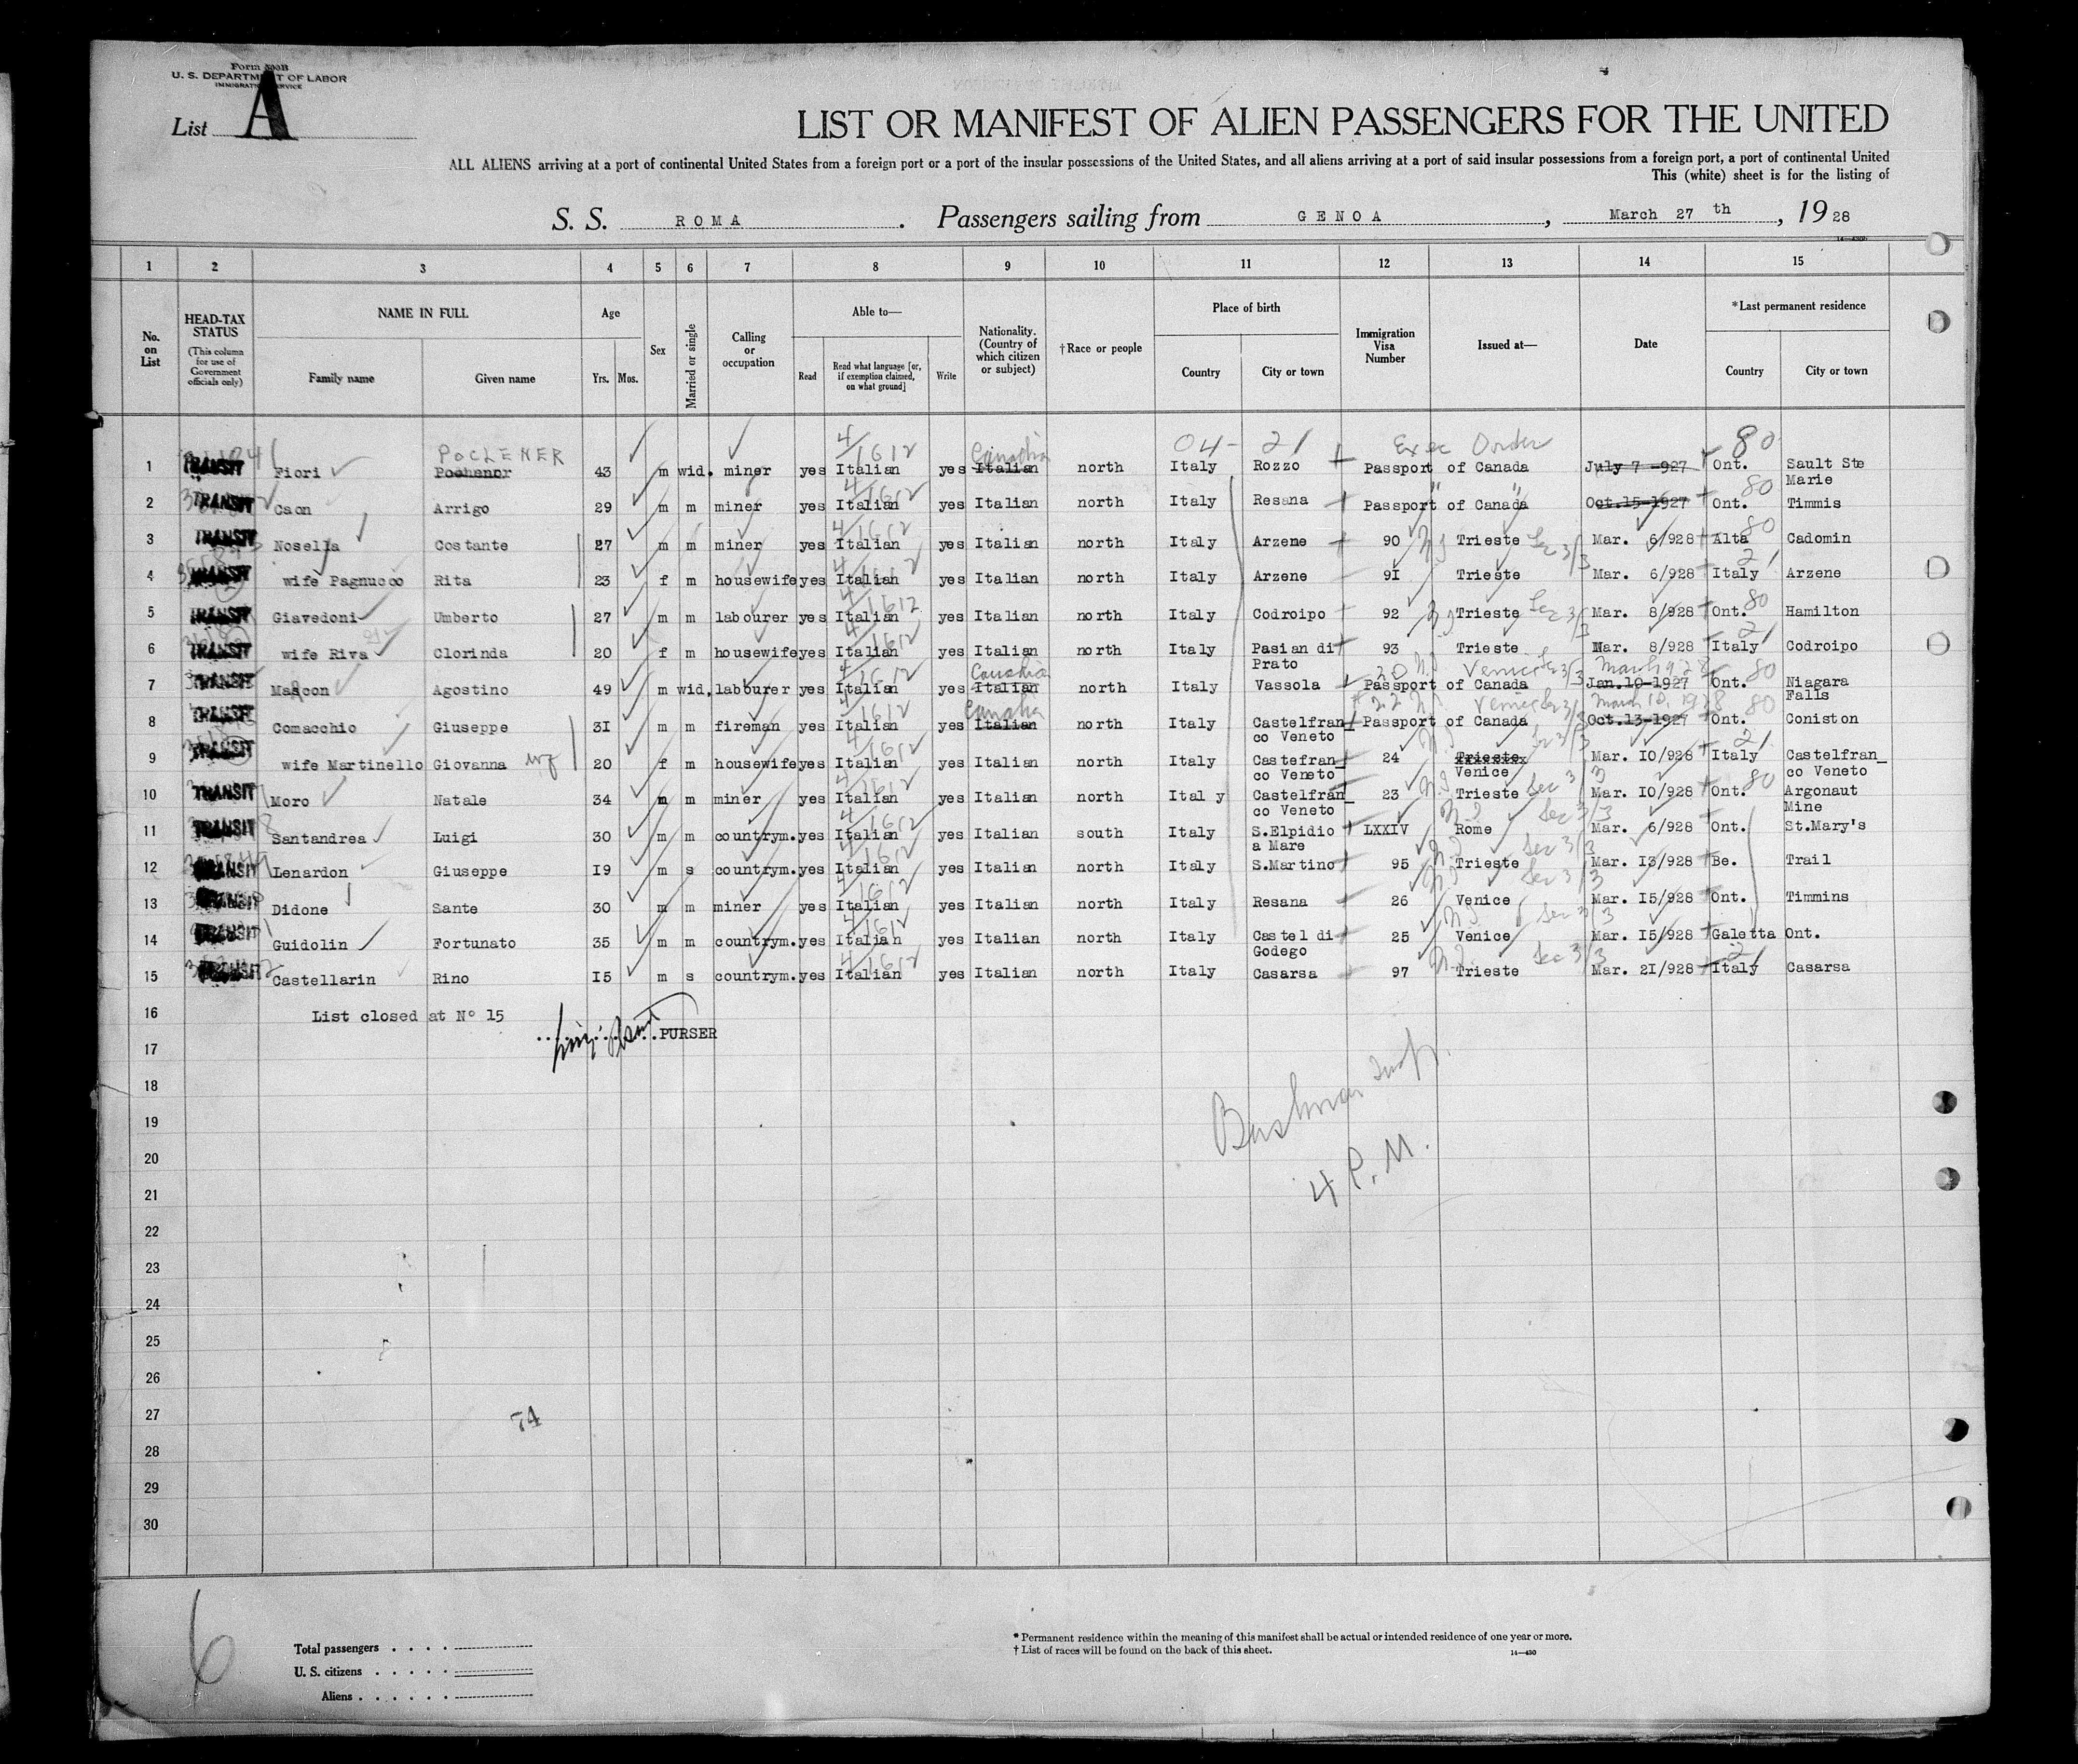 Form 500B
U. S. DEPARTMENT OF LABOR
IMMIGRATION SERVICE
List A
LIST OR MANIFEST OF ALIEN PASSENGERS FOR THE UNITED
ALL ALIENS arriving at a port of continental United States from a foreign port or a port of the insular possessions of the United States, and all aliens arriving at a port of said insular possessions from a foreign port, a port of continental United
This (white) sheet is for the listing of
S. S. ROMA. Passengers sailing from GENOA, March 27 th, 19 28
1 2 3 4 5 6 7 8 9 10 11 12 13 14 15
No. on List
HEAD-TAX STATUS (This column for use of Government officials only)
NAME IN FULL Family name Given name
Age Yrs. Mos.
Sex
Married or single
Calling or occupation
Able to— Read Read what language [or, if exemption claimed, on what ground] Write
Nationality. (Country of which citizen or subject)
†Race or people
Place of birth Country City or town
Immigration Visa Number
Issued at—
Date
*Last permanent residence Country City or town
POCLENER 4/1612 Canadian 04- 21 Exec Order 80
1 TRANSIT Fiori Pochenor 43 m wid. miner yes Italian yes Italian north Italy Rozzo Passport of Canada July 7 -927 Ont. Sault Ste Marie
4/1612 " " 80
2 TRANSIT Caon Arrigo 29 m m miner yes Italian yes Italian north Italy Resana Passport of Canada Oct.15-1927 Ont. Timmis
4/1612 80
3 TRANSIT Nosella Costante 27 m m miner yes Italian yes Italian north Italy Arzene 90 Trieste Sec 3/3 Mar. 6/928 Alta Cadomin
4/1612 21
4 TRANSIT wife Pagnucco Rita 23 f m housewife yes Italian yes Italian north Italy Arzene 91 Trieste Mar. 6/928 Italy Arzene
4/1612 80
5 TRANSIT Giavedoni Umberto 27 m m labourer yes Italian yes Italian north Italy Codroipo 92 Trieste Sec 3/3 Mar. 8/928 Ont. Hamilton
4/1612 21
6 TRANSIT wife Riva Clorinda 20 f m housewife yes Italian yes Italian north Italy Pasian di Prato 93 Trieste Mar. 8/928 Italy Codroipo
4/1612 20 Venice Sec 3/3 80
7 TRANSIT Mascon Agostino 49 m wid. labourer yes Italian yes Italian north Italy Vassola Passport of Canada Jan.10-1927 Ont. Niagara Falls
4/1612 22 Venice Sec 3/3 March 10, 1928 80
8 TRANSIT Comacchio Giuseppe 31 m m fireman yes Italian yes Italian north Italy Castelfran_ co Veneto Passport of Canada Oct.13-1927 Ont. Coniston
4/1612 21
9 TRANSIT wife Martinello Giovanna wf 20 f m housewife yes Italian yes Italian north Italy Castefran_ co Veneto 24 Trieste Venice Mar. 10/928 Italy Castelfran_ co Veneto
4/1612 80
10 TRANSIT Moro Natale 34 m m miner yes Italian yes Italian north Ital y Castelfran_ co Veneto 23 Trieste Sec 3/3 Mar. 10/928 Ont. Argonaut Mine
4/1612
11 TRANSIT Santandrea Luigi 30 m m countrym. yes Italian yes Italian south Italy S.Elpidio a Mare LXXIV Rome Sec 3/3 Mar. 6/928 Ont. St.Mary's
4/1612
12 TRANSIT Lenardon Giuseppe 19 m s countrym. yes Italian yes Italian north Italy S.Martino 95 Trieste Sec 3/3 Mar. 13/928 Be. Trail
4/1612
13 TRANSIT Didone Sante 30 m m miner yes Italian yes Italian north Italy Resana 26 Venice Sec 3/3 Mar. 15/928 Ont. Timmins
4/1612
14 TRANSIT Guidolin Fortunato 35 m m countrym. yes Italian yes Italian north Italy Castel di Godego 25 Venice Sec 3/3 Mar. 15/928 Galetta Ont.
4/1612 21
15 TRANSIT Castellarin Rino 15 m s countrym. yes Italian yes Italian north Italy Casarsa 97 Trieste Sec 3/3 Mar. 21/928 Italy Casarsa
16 List closed at N° 15
PURSER
17
18
19
20
4 P.M.
21
22
23
24
25
26
27
74
28
29
30
6
Total passengers
U. S. citizens
Aliens
* Permanent residence within the meaning of this manifest shall be actual or intended residence of one year or more.
† List of races will be found on the back of this sheet.
14—430